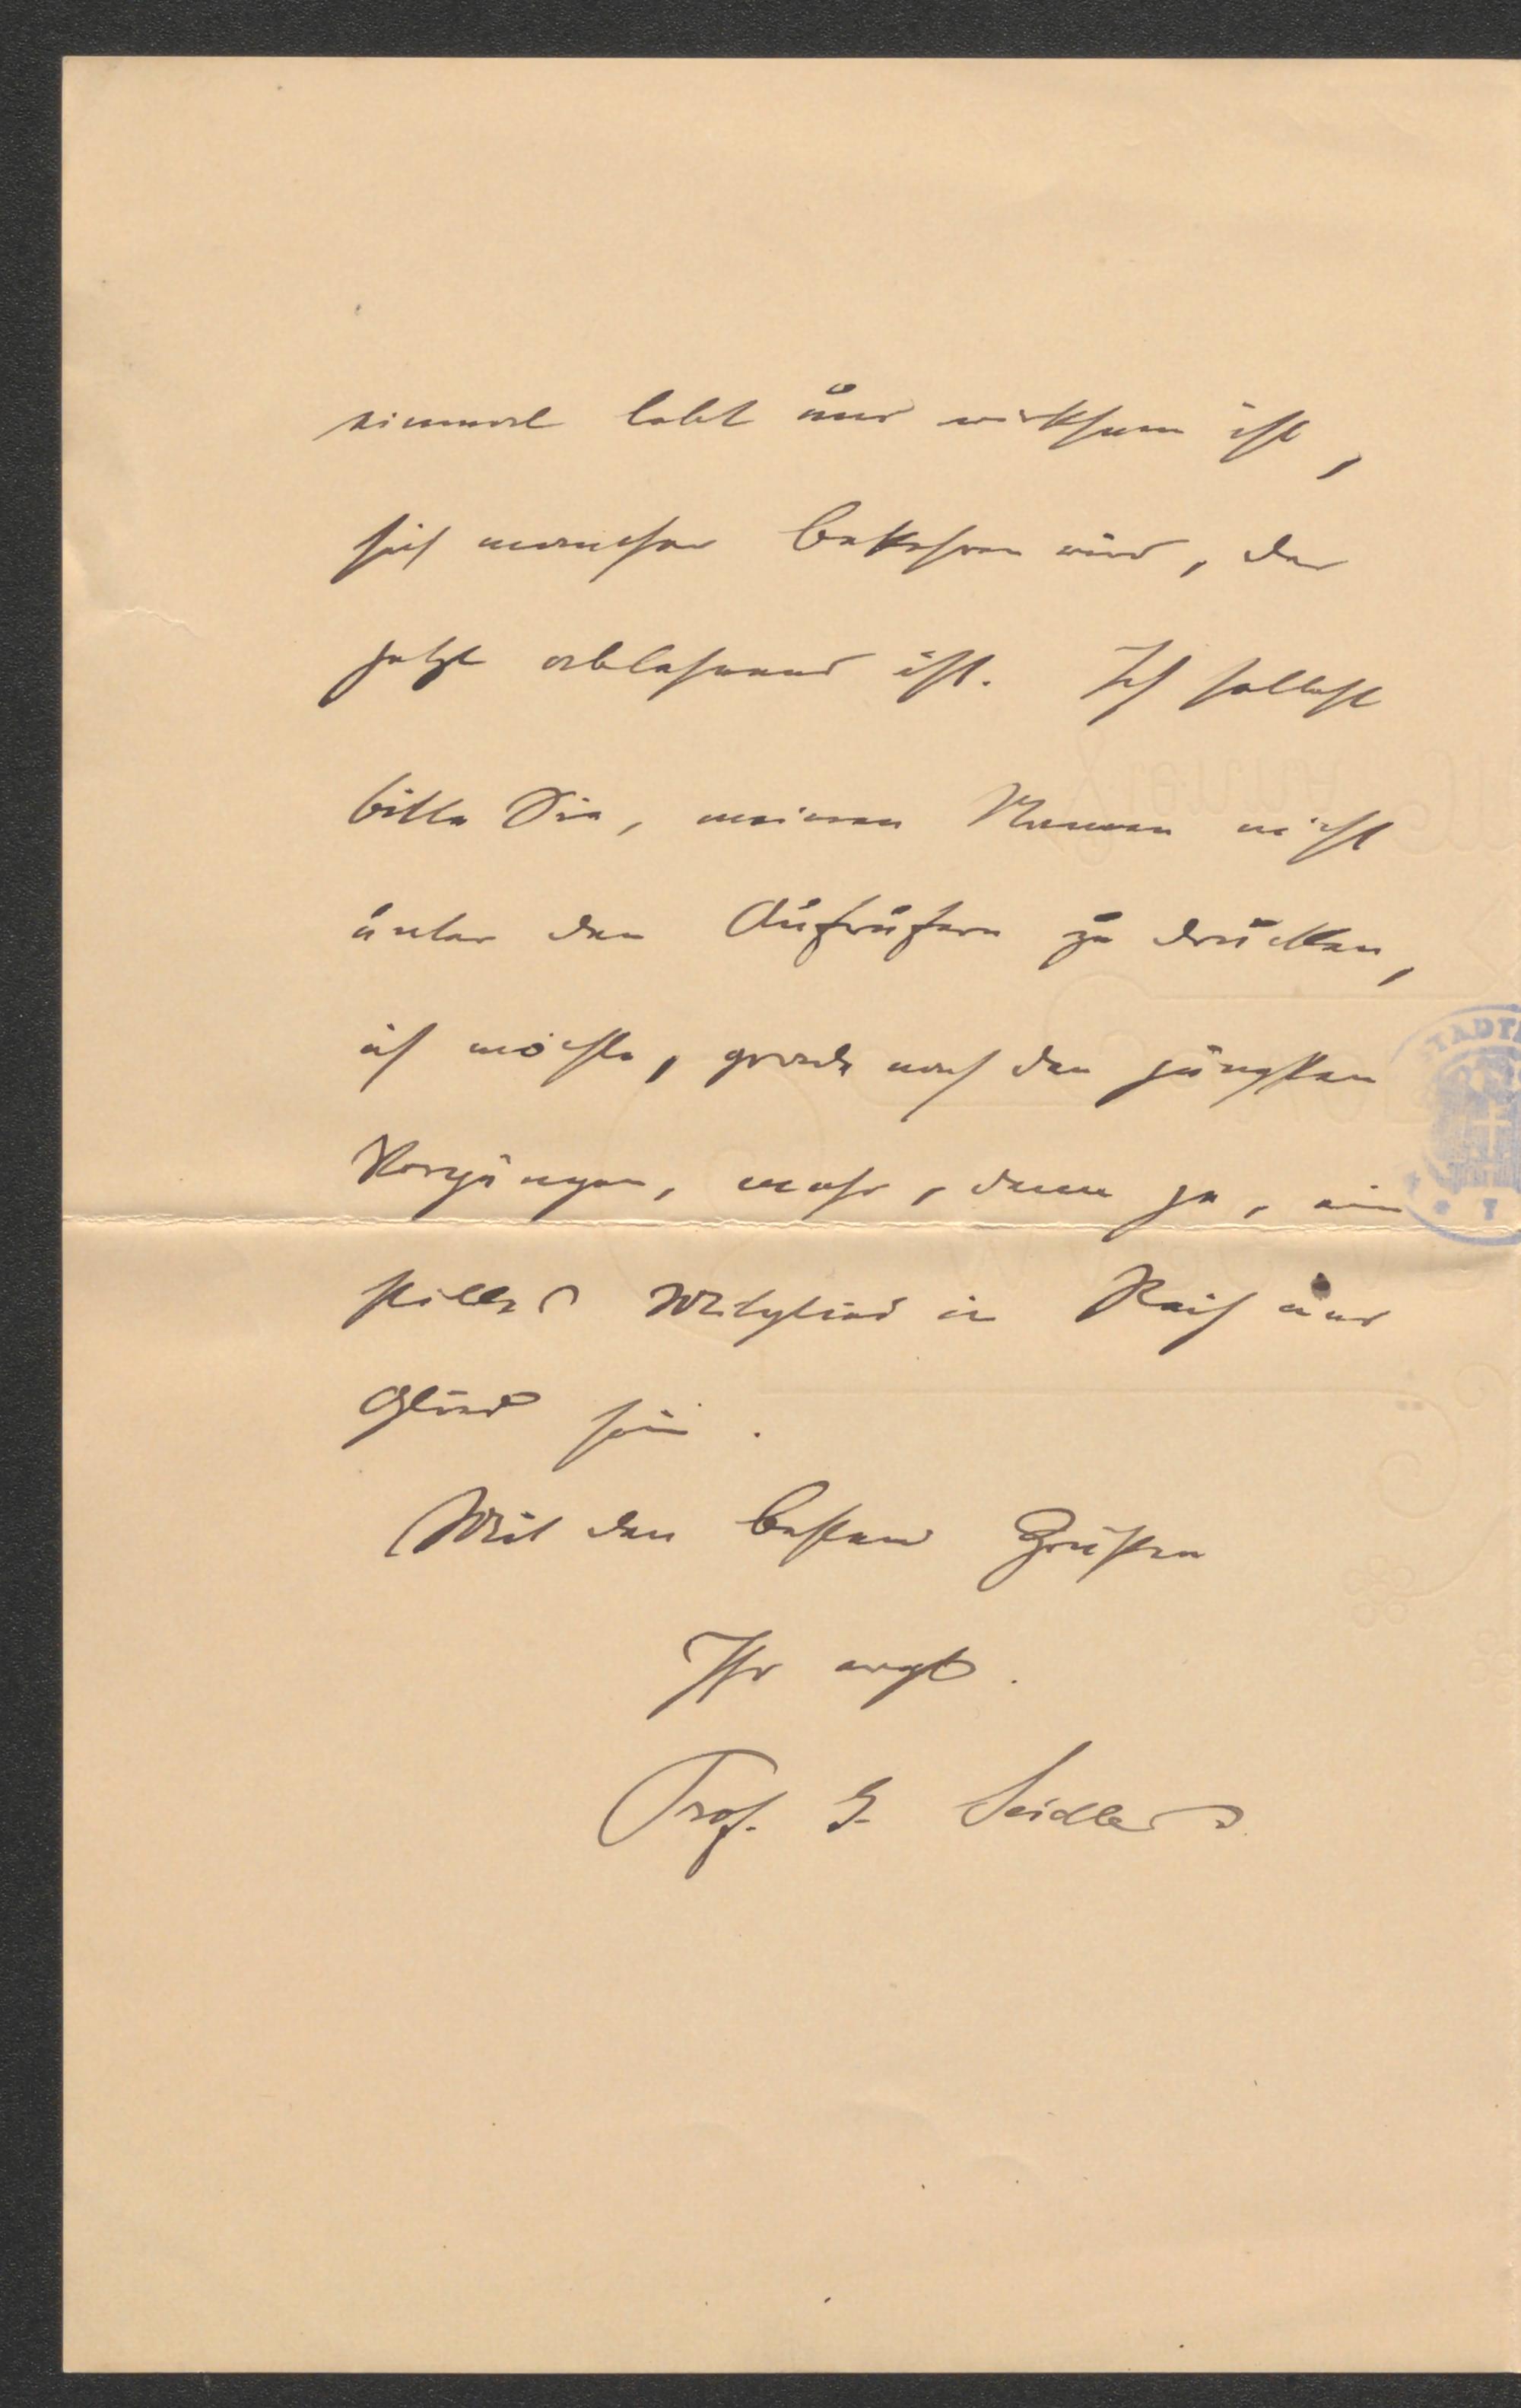 einmal lebt und wirksam ist,
sich mancher bekehren wird, der
jetzt ablehnend ist. Ich selbst
bitte Sie, meinen Namen nicht
unter den Aufrufern zu drucken,
ich möchte, grade nach den jüngsten
Vorgängen, mehr, denn je, ein
stilles Mitglied in Reih und
Glied sein.
Mit den besten Grüßen
Ihr ergb.
Prof. G. Seidler
STADT